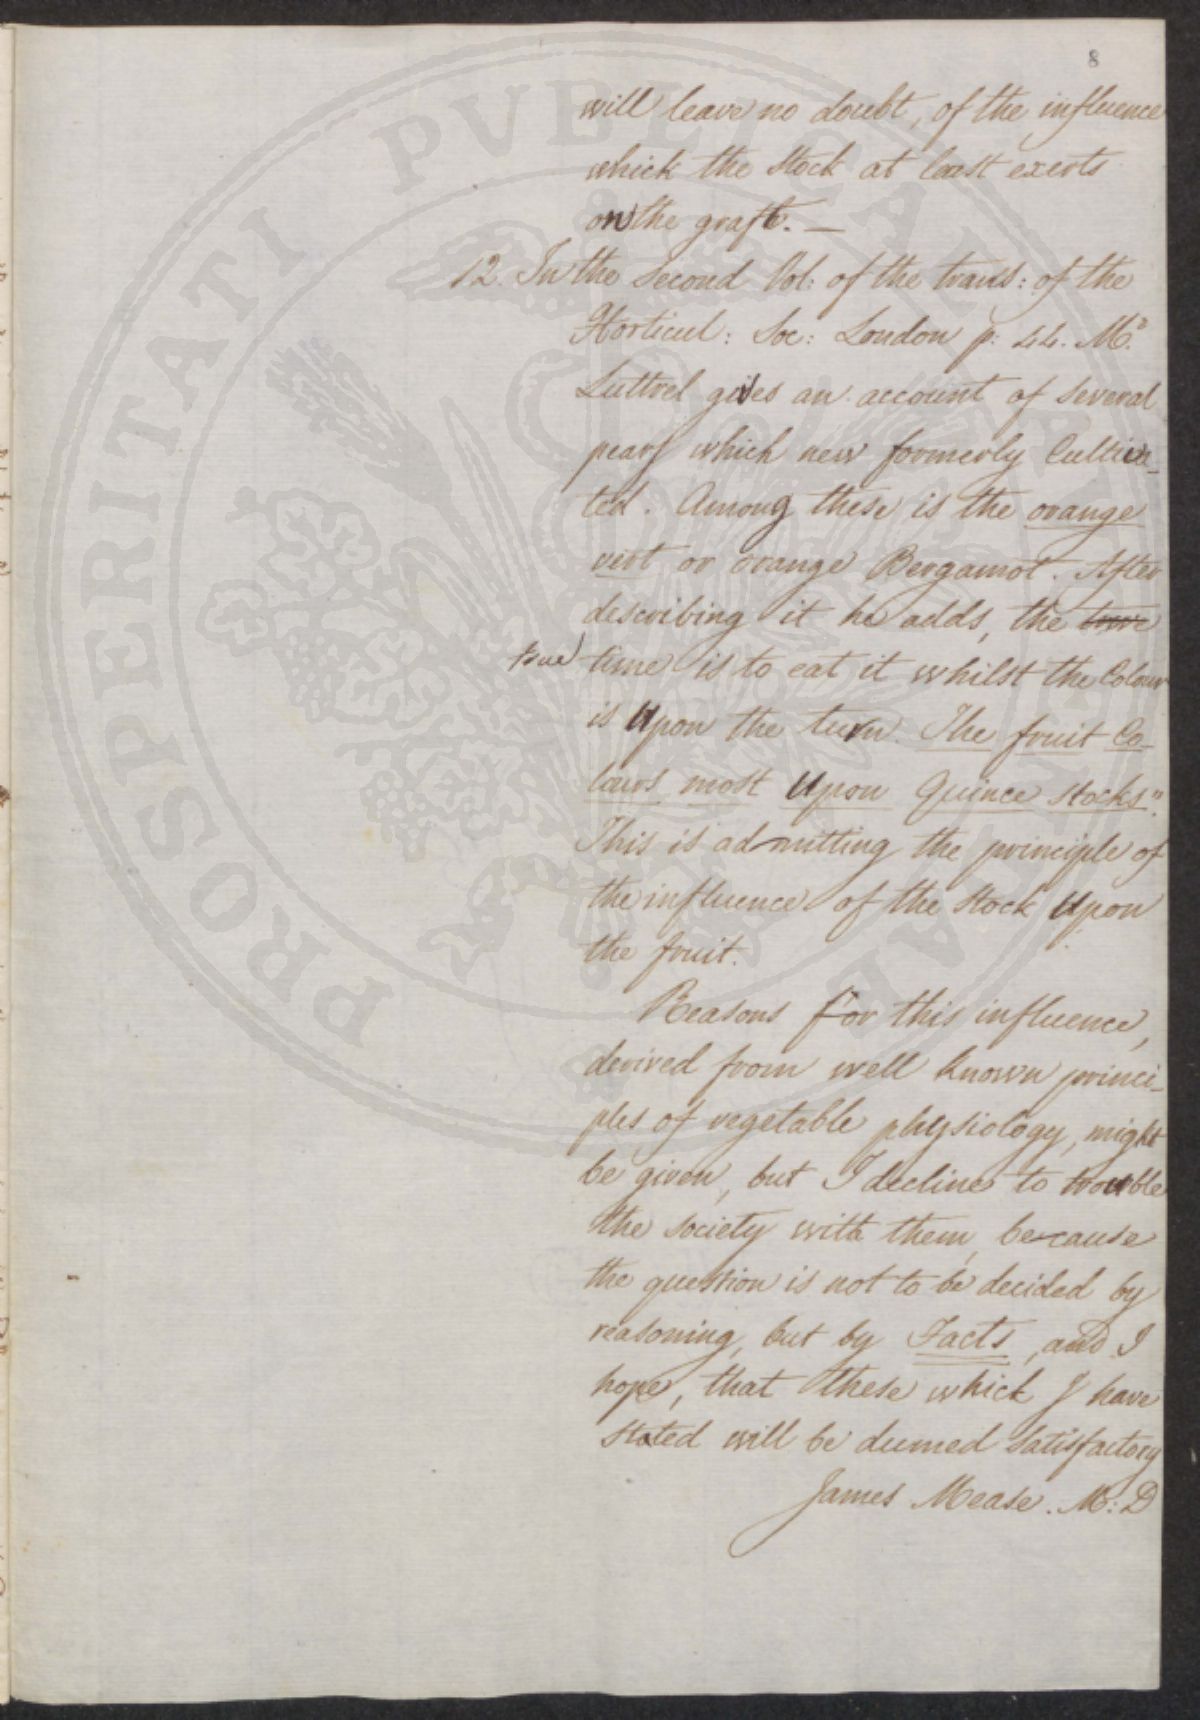 8
will leave no doubt, of the influence
which the stock at least exerts
on the graft. —
12. In the second Vol: of the trans: of the
Horticul: Soc: London p: 44. Mr.
Luttrel gives an account of several
pears which new formerly Cultiva-
ted. Among these is the orange
vert or orange Bergamot. After
describing it he adds, the
true time is to eat it whilst the Colour
is Upon the turn. The fruit Co-
lours most Upon Quince stocks."
This is admitting the principle of
the influence of the stock Upon
the fruit.
Reasons for this influence,
derived from well known princi-
ples of vegetable physiology, might
be given, but I decline to trouble
the society with them, because
the question is not to be decided by
reasoning, but by Facts, and I
hope, that these which I have
stated will be deemed satisfactory
James Mease. M: D
PROSPERITATI PUBLICAE